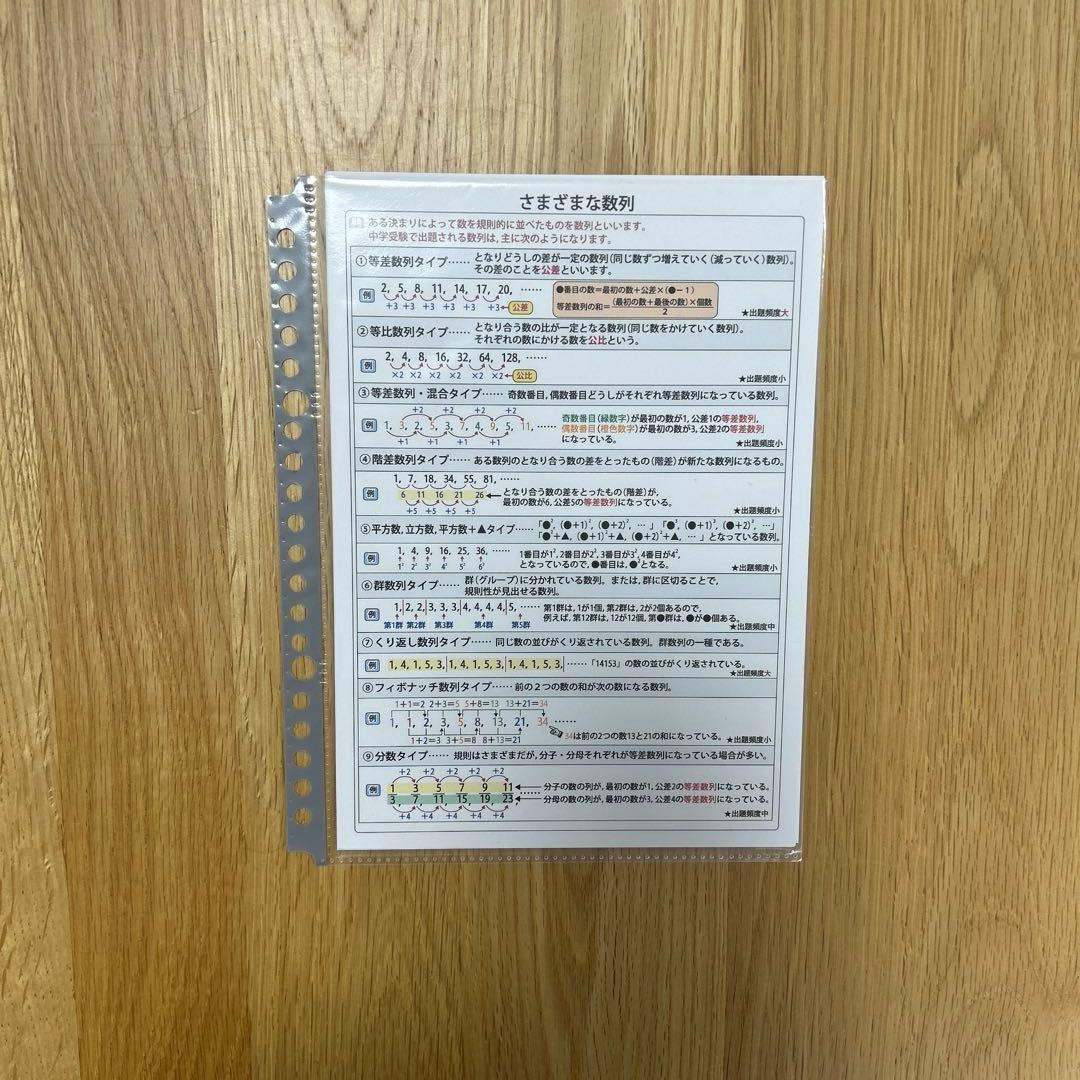 さまざまな数列
ある決まりによって数を規則的に並べたものを数列といいます。
中学受験で出題される数列は，主に次のようになります。
①等差数列タイプ…… となりどうしの差が一定の数列(同じ数ずつ増えていく(減っていく)数列)。
その差のことを公差といいます。
例 2, 5, 8, 11, 14, 17, 20, ……
+3 +3 +3 +3 +3 +3 公差
●番目の数＝最初の数＋公差×(●－1)
等差数列の和＝(最初の数＋最後の数)×個数
2
★出題頻度大
②等比数列タイプ…… となり合う数の比が一定となる数列(同じ数をかけていく数列)。
それぞれの数にかける数を公比という。
例 2, 4, 8, 16, 32, 64, 128, ……
×2 ×2 ×2 ×2 ×2 ×2 公比
★出題頻度小
③等差数列・混合タイプ…… 奇数番目，偶数番目どうしがそれぞれ等差数列になっている数列。
+2 +2 +2 +2
例 1, 3, 2, 5, 3, 7, 4, 9, 5, 11, ……
+1 +1 +1
奇数番目(緑数字)が最初の数が1, 公差1の等差数列,
偶数番目(橙色数字)が最初の数が3, 公差2の等差数列
になっている。
★出題頻度小
④階差数列タイプ…… ある数列のとなり合う数の差をとったもの(階差)が新たな数列になるもの。
例 1, 7, 18, 34, 55, 81, ……
6 11 16 21 26
+5 +5 +5 +5
となり合う数の差をとったもの(階差)が，
最初の数が6, 公差5の等差数列になっている。
★出題頻度小
⑤平方数, 立方数, 平方数＋▲タイプ…… 「●², (●+1)², (●+2)², …」「●³, (●+1)³, (●+2)³, …」
「●²+▲, (●+1)²+▲, (●+2)²+▲, …」となっている数列。
例 1, 4, 9, 16, 25, 36, ……
1² 2² 3² 4² 5² 6²
1番目が1², 2番目が2², 3番目が3², 4番目が4²,
となっているので, ●番目は, ●²となる。
★出題頻度小
⑥群数列タイプ…… 群(グループ)に分かれている数列。または, 群に区切ることで,
規則性が見出せる数列。
例 1,|2, 2,|3, 3, 3,|4, 4, 4, 4,|5, ……
第1群 第2群 第3群 第4群 第5群
第1群は, 1が1個, 第2群は, 2が2個あるので,
例えば, 第12群は, 12が12個, 第●群は, ●が●個ある。
★出題頻度中
⑦くり返し数列タイプ…… 同じ数の並びがくり返されている数列。群数列の一種である。
例 1, 4, 1, 5, 3,|1, 4, 1, 5, 3,|1, 4, 1, 5, 3, ……「14153」の数の並びがくり返されている。
★出題頻度大
⑧フィボナッチ数列タイプ…… 前の2つの数の和が次の数になる数列。
1+1=2 2+3=5 5+8=13 13+21=34
例 1, 1, 2, 3, 5, 8, 13, 21, 34 ……
1+2=3 3+5=8 8+13=21
34は前の2つの数13と21の和になっている。★出題頻度小
⑨分数タイプ…… 規則はさまざまだが, 分子・分母それぞれが等差数列になっている場合が多い。
+2 +2 +2 +2 +2
例 1 3 5 7 9 11
3, 7, 11, 15, 19, 23, ……
+4 +4 +4 +4 +4
分子の数の列が, 最初の数が1, 公差2の等差数列になっている。
分母の数の列が, 最初の数が3, 公差4の等差数列になっている。
★出題頻度中